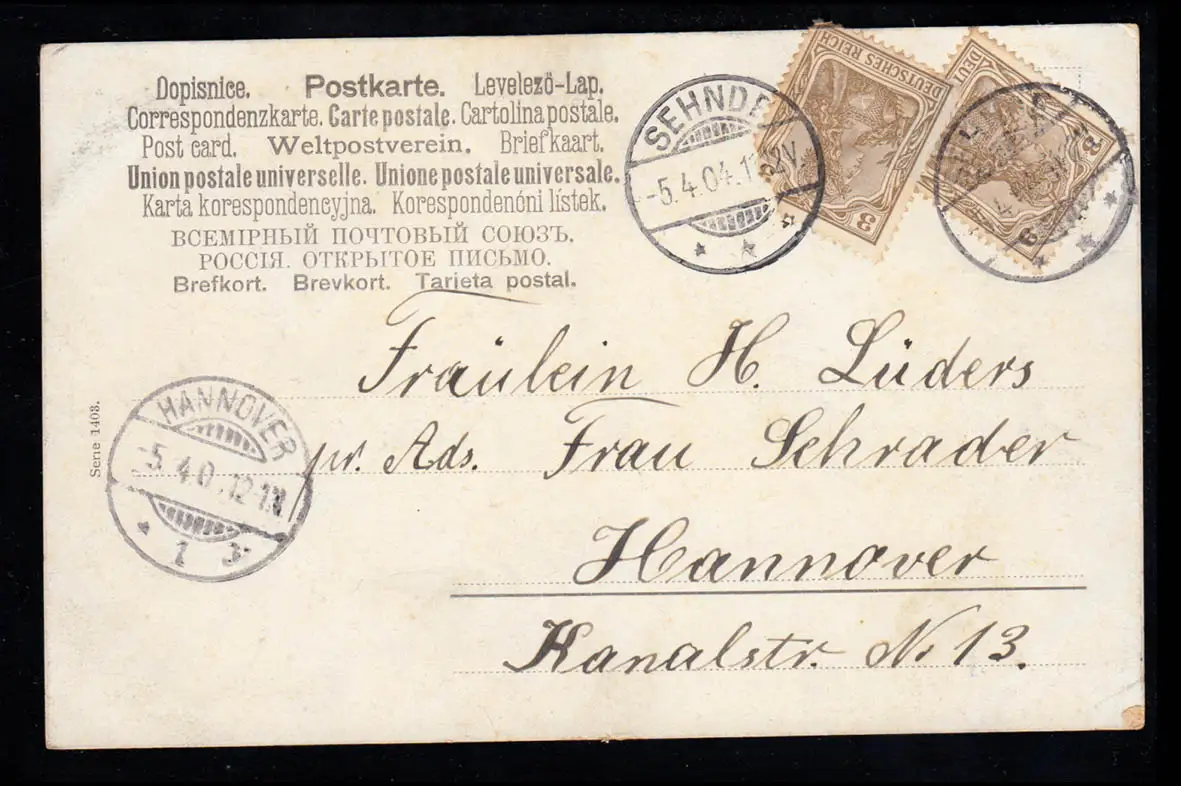 Dopisnice. Postkarte. Levelező-Lap.
Correspondenzkarte. Carte postale. Cartolina postale.
Post card. Weltpostverein. Briefkaart.
Union postale universelle. Unione postale universale.
Karta korespondencyjna. Korespondenční lístek.
ВСЕМІРНЫЙ ПОЧТОВЫЙ СОЮЗЪ.
РОССІЯ. ОТКРЫТОЕ ПИСЬМО.
Brefkort. Brevkort. Tarjeta postal.
SEHNDE
-5.4.04.11-12V.
DEUTSCHES REICH
3
3
Fräulein H. Lüders
pr. Ads. Frau Schrader
Hannover
Kanalstr. № 13.
HANNOVER
-5.4.0 .12-1N.
* 1 3.
Serie 1403.